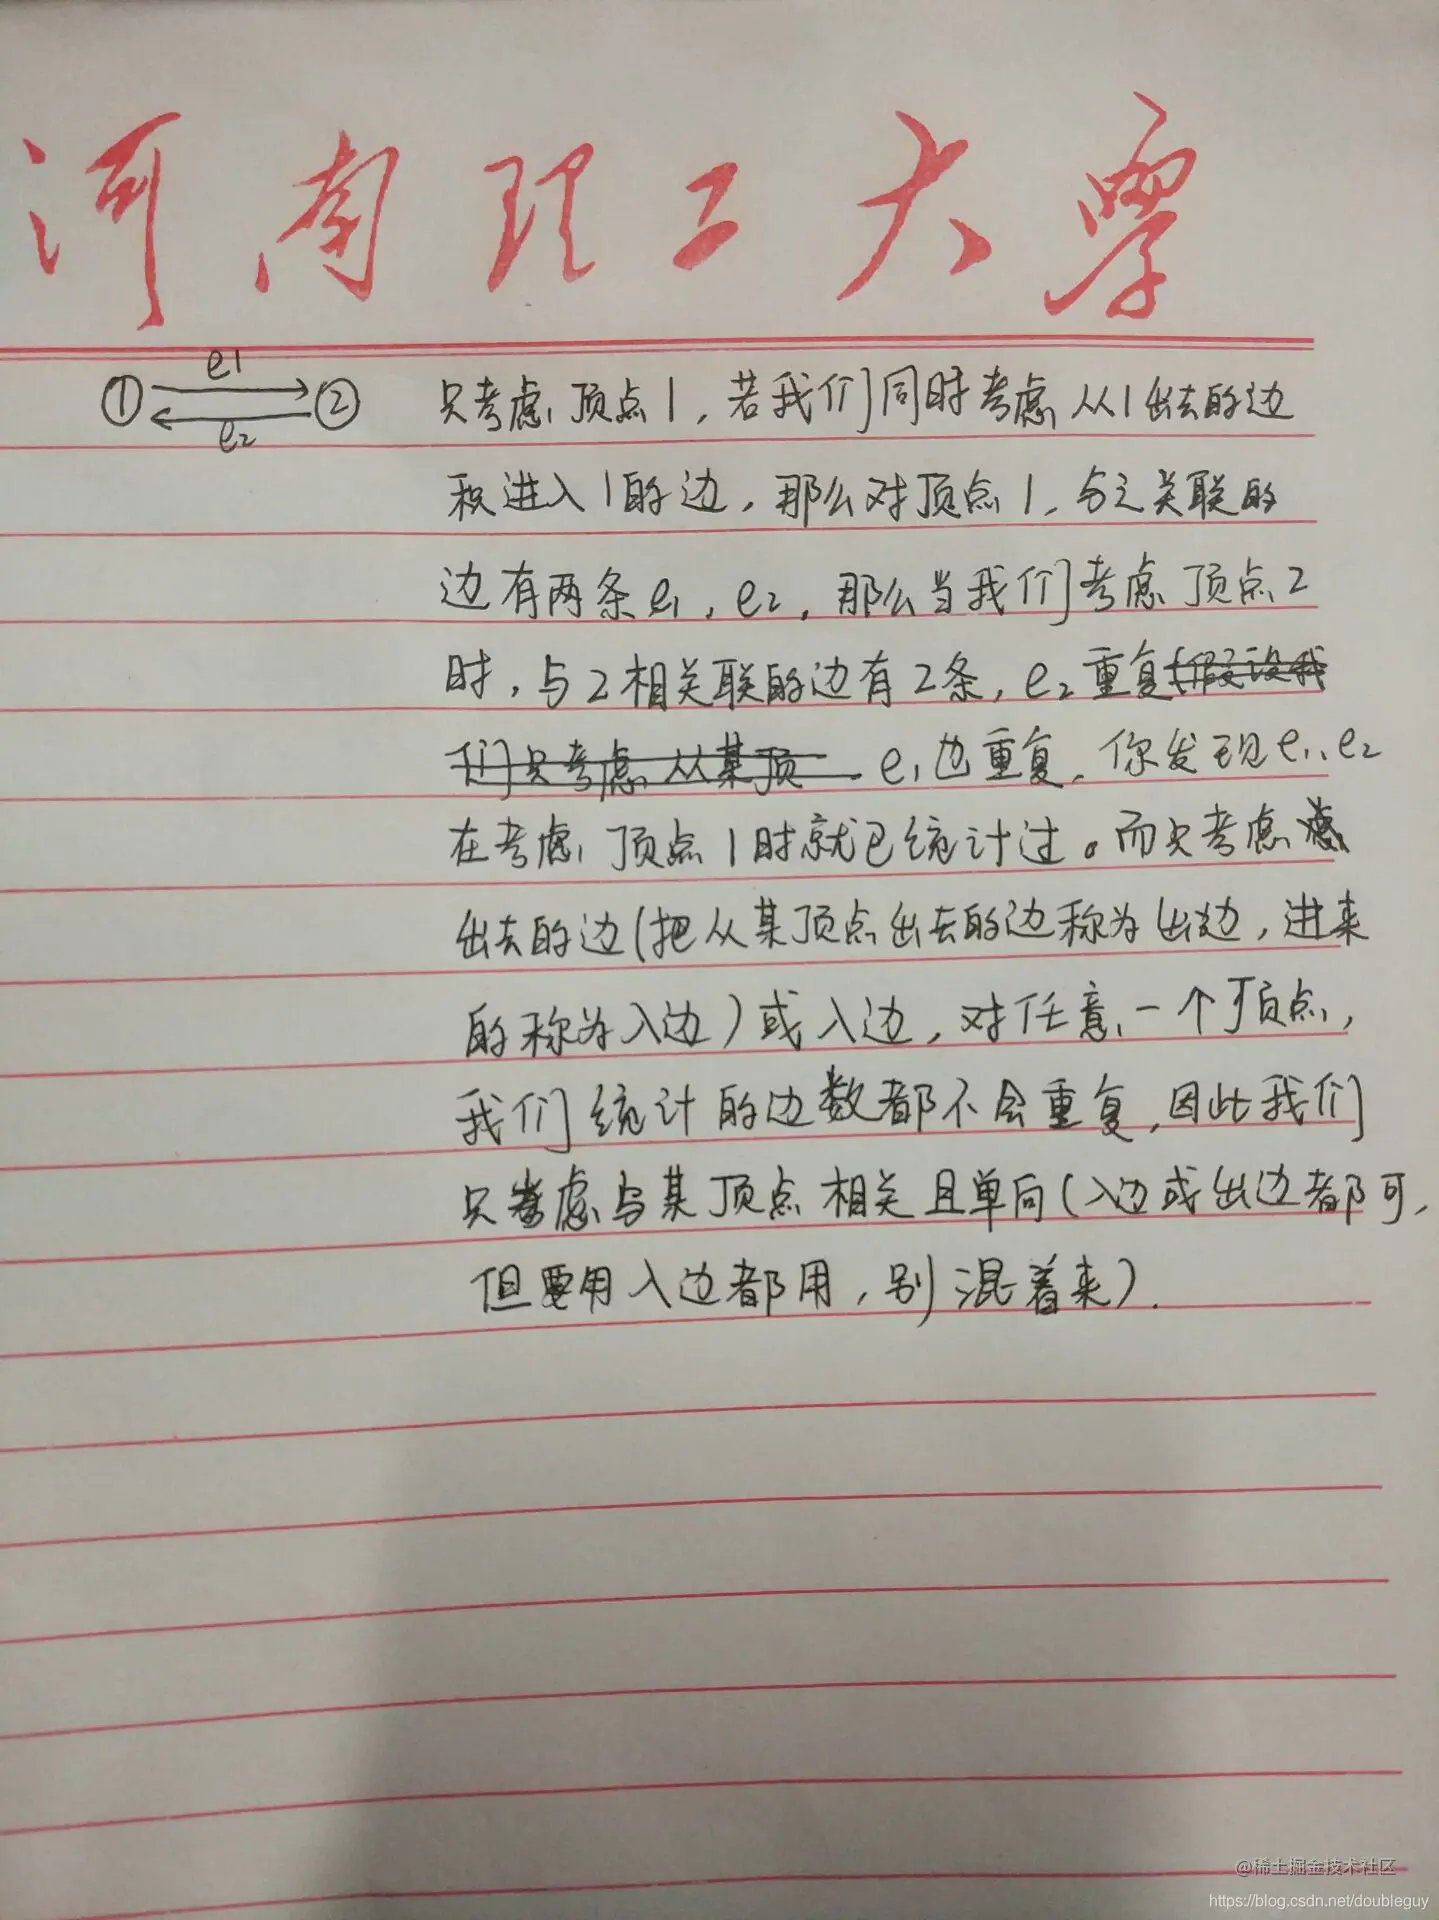 河南理工大学
e1
① ② 只考虑顶点1,若我们同时考虑从1出去的边
e2
和进入1的边,那么对顶点1,与之关联的
边有两条e1,e2,那么当我们考虑顶点2
时,与2相关联的边有2条,e2重复(假设我
们只考虑从某顶 . e1也重复,你发现e1、e2
在考虑顶点1时就已统计过。而只考虑
出去的边(把从某顶点出去的边称为出边,进来
的称为入边)或入边,对任意一个顶点,
我们统计的边数都不会重复,因此我们
只考虑与某顶点相关且单向(入边或出边都可,
但要用入边都用,别混着来).
@稀土掘金技术社区
https://blog.csdn.net/doubleguy